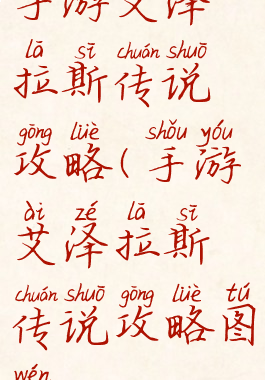 手游艾泽
lā sī chuán shuō
拉斯传说
gōng lüè shǒu yóu
攻略(手游
ài zé lā sī
艾泽拉斯
chuán shuō gōng lüè tú
传说攻略图
wén